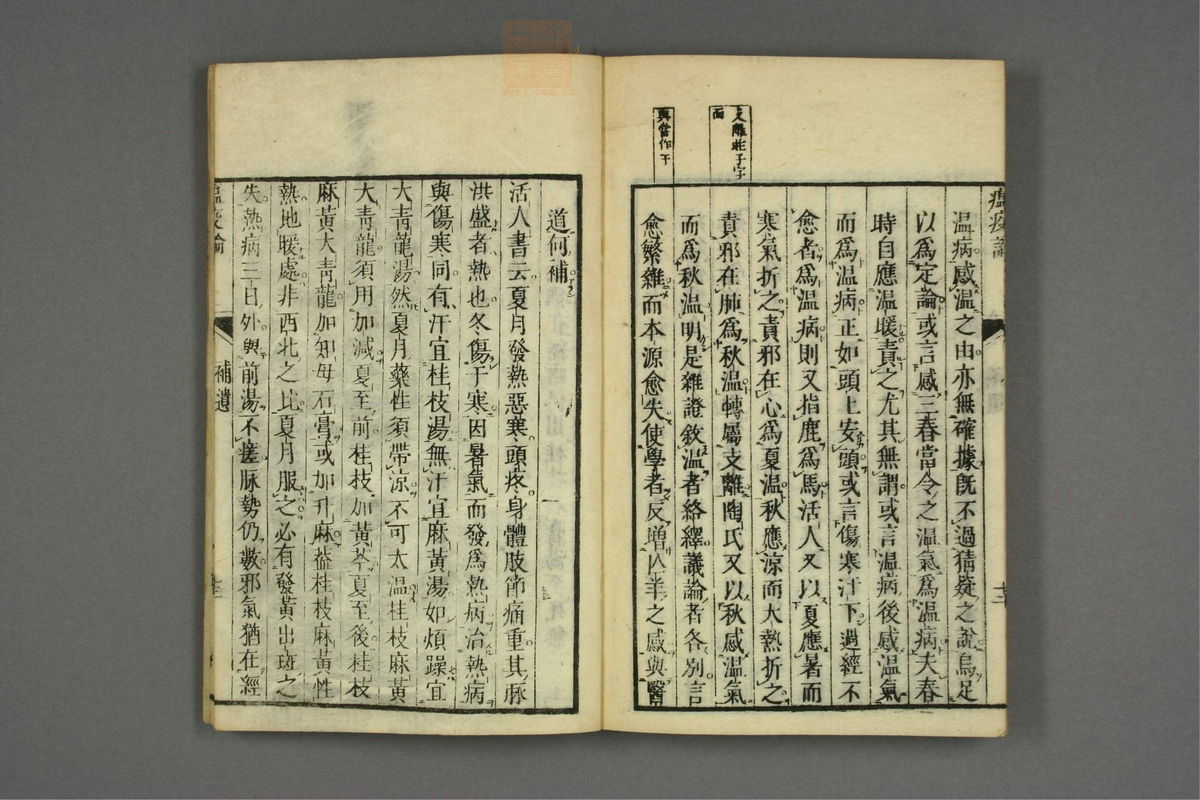 支離莊子字
面
與當作于
瘟疫論
温病感温之由亦無確據旣不過猜疑之說烏足
以爲定論或言感三春當令之温氣爲温病夫春
時自應温暖責之尤其無謂或言温病後感温氣
而爲温病正如頭上安頭或言傷寒汗下過經不
愈者爲温病則又指鹿爲馬活人又以夏應暑而
寒氣折之責邪在心爲夏温秋應涼而大熱折之
責邪在肺爲秋温轉屬支離陶氏又以秋感温氣
而爲秋温明是雜證敘温者絡繹議論者各別言
愈繁雜而本源愈失使學者反增亡羊之感與醫
道何補
活人書云夏月發熱惡寒頭疼身體肢節痛重其脈
洪盛者熱也冬傷于寒因暑氣而發爲熱病治熱病
與傷寒同有汗宜桂枝湯無汗宜麻黃湯如煩躁宜
大青龍湯然夏月藥性須帶涼不可太温桂枝麻黃
大青龍須用加減夏至前桂枝加黃芩夏至後桂枝
麻黃大青龍加知母石膏或加升麻蓋桂枝麻黃性
熱地暖處非西北之比夏月服之必有發黃出斑之
失熱病三日外與前湯不瘥脉勢仍數邪氣猶在經
瘟疫論
補遺